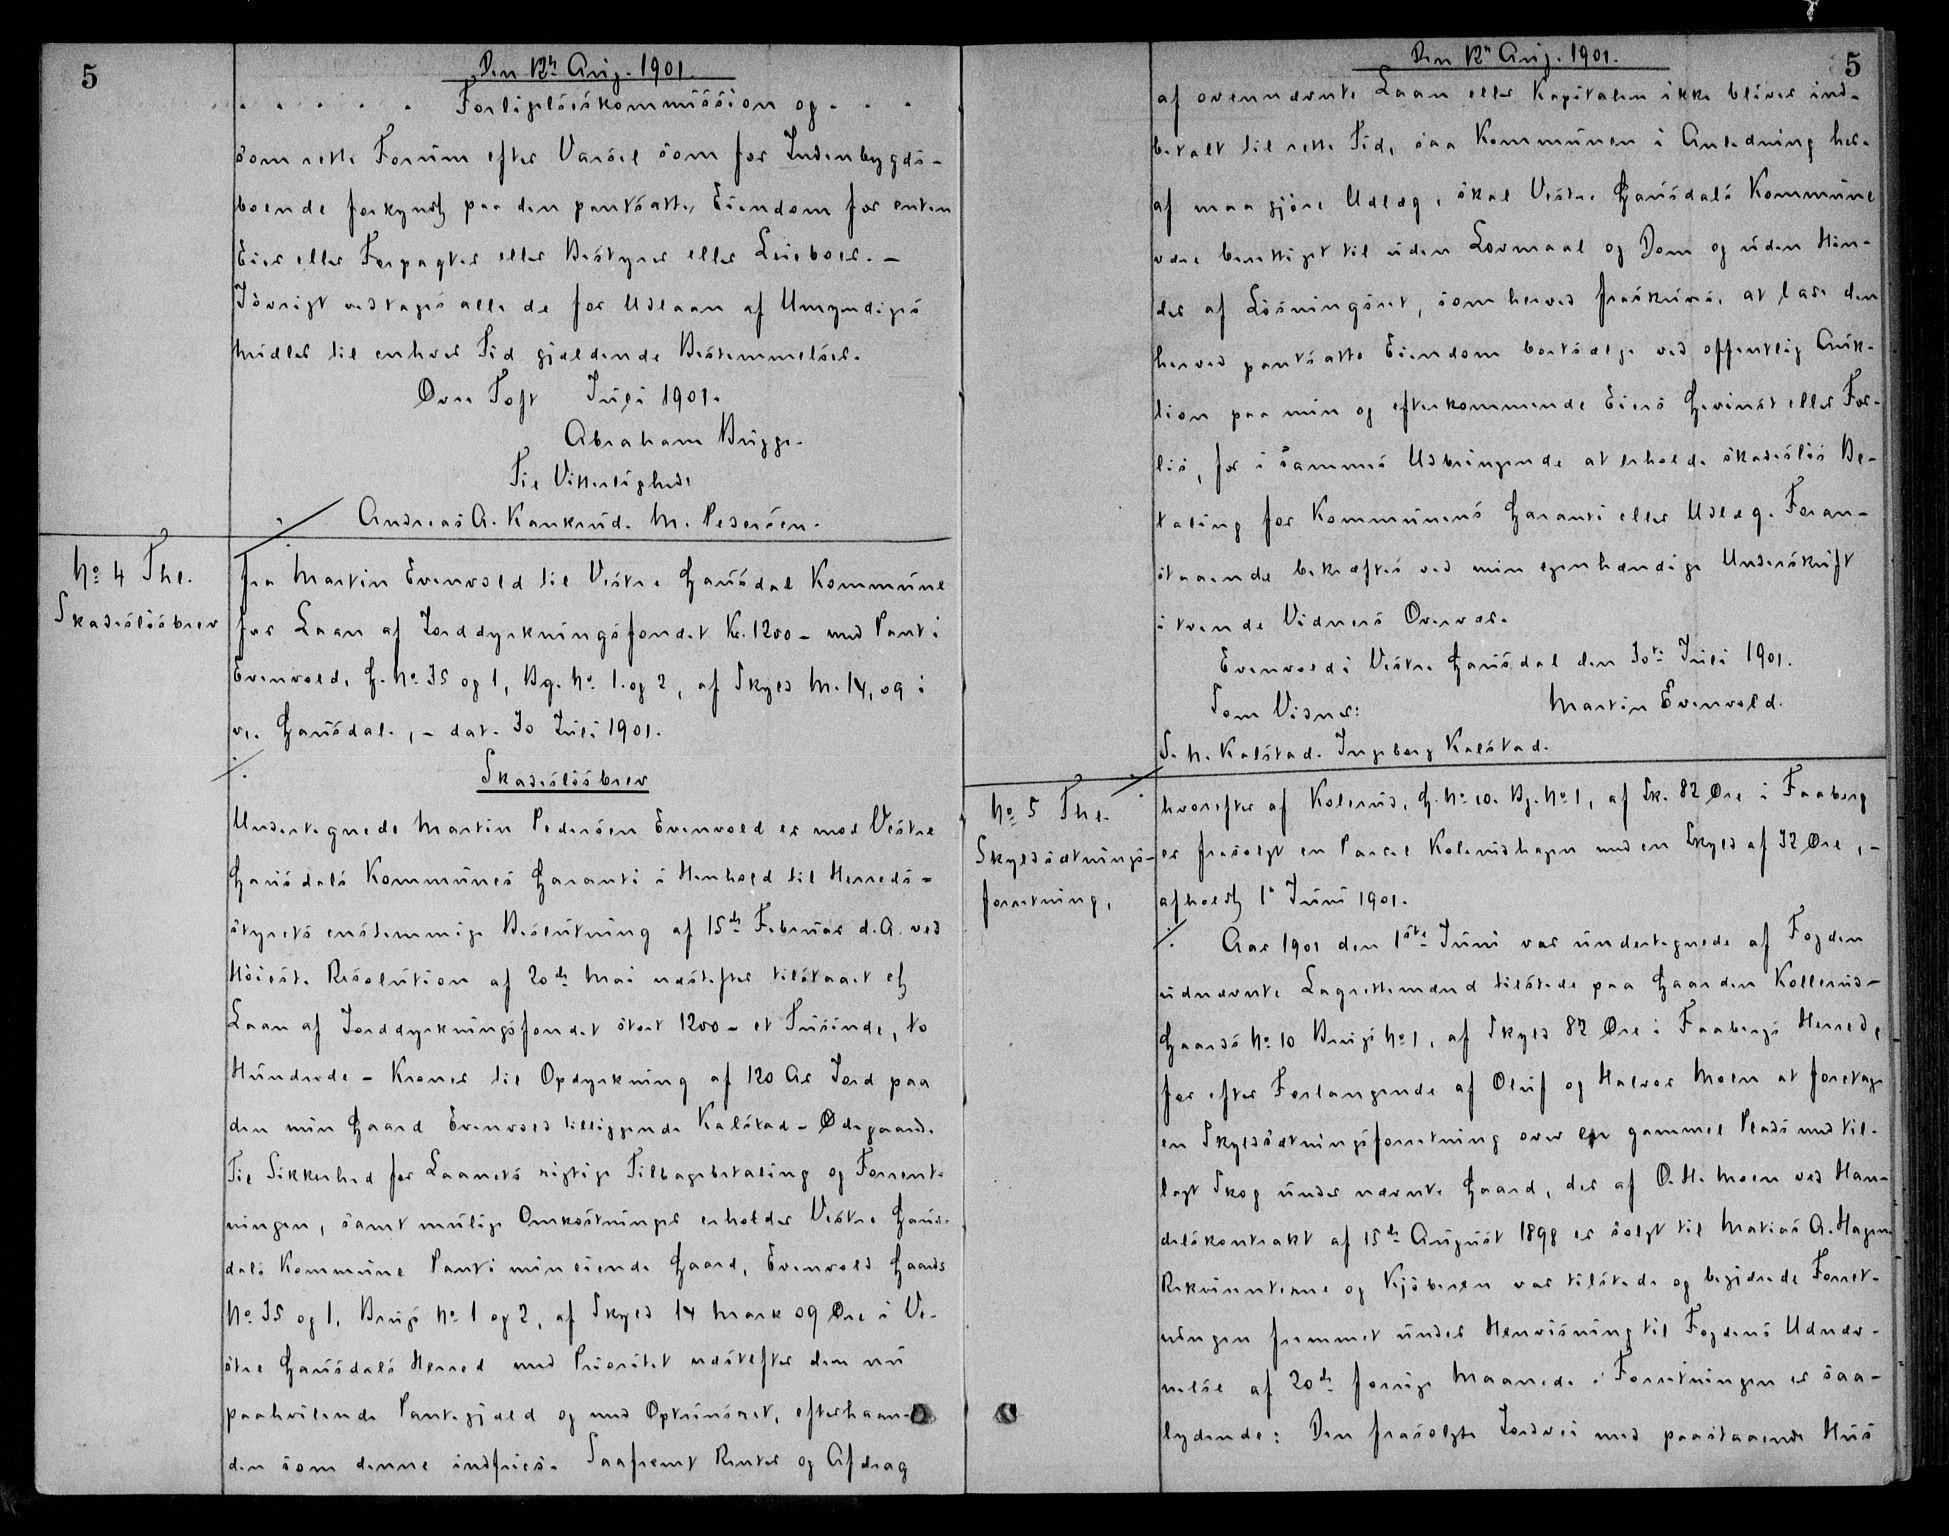 5
Den 12te Aug. 1901.
. . . . . Forligelseskommission og . . .
som rette Forum efter Varsel som for Indenbygds-
boende forkyndt paa den pantsatte Eiendom for enten
Eier eller Forpagter eller Bestyrer eller Leieboer. –
Iøvrigt vedtages alle de for Udlaan af Umyndiges
Midler til enhver Tid gjældende Bestemmelser.
Øvre Toft Juli 1901.
Abraham Brygge.
Til Vitterlighed:
Andreas A. Kankrud. M. Pedersen.
No 4 Thl.
Skadesløsbrev
fra Martin Evenvold til Vestre Gausdal Kommune
for Laan af Jorddyrkningsfondet Kr. 1200 – med Pant i
Evenvold, G. No 35 og 1, Bg. No 1. og 2, af Skyld M. 14,09 i
v. Gausdal., – dat. 30 Juli 1901.
./.
Skadesløsbrev
Undertegnede Martin Pedersen Evenvold er mod Vestre
Gausdals Kommunes Garanti i Henhold til Herreds-
styrets enstemmige Beslutning af 15de Februar d.A. ved
Høieste Resolution af 20de Mai næstefter tilstaaet et
Laan af Jorddyrkningsfondet stort 1200 – et Tusinde, to
Hundrede – Kroner til Opdyrkning af 120 Ar Jord paa
den min Gaard Evenvold tilliggende Kalstad-Ødegaard.
Til Sikkerhed for Laanets rigtige Tilbagebetaling og Forrent-
ningen, samt mulige Omkostninger erholder Vestre Gaus-
dals Kommune Pant i min eiende Gaard, Evenvold Gaards
No 35 og 1, Brugs No 1 og 2, af Skyld 14 Mark 09 Øre i Ve-
stre Gausdals Herred med Prioritet næstefter den nu
paahvilende Pantegjæld og med Optrinsret, efterhaan-
den som denne indfries. Saafremt Renter og Afdrag
Den 12te Aug. 1901.
5
af ovennævnte Laan eller Kapitalen ikke bliver ind-
betalt til rette Tid, saa Kommunen i Anledning her-
af maa gjøre Udlæg, skal Vestre Gausdals Kommune
være berettiget til uden Lovmaal og Dom og uden Hin-
der af Løsningsret, som herved fraskrives, at lade den
herved pantsatte Eiendom bortsælge ved offentlig Auk-
tion paa min og efterkommende Eiers Gevinst eller For-
lis, for i sammes Udbringende at erholde skadesløs Be-
taling for Kommunens Garanti eller Udlæg. Foran-
staaende bekræftes ved min egenhændige Underskrift
i tvende Vidners Overvær.
Evenvold i Vestre Gausdal den 30te Juli 1901.
Som Vidner: Martin Evenvold.
S. N. Kalstad. Ingeborg Kalstad.
No 5 Thl.
Skyldsætnings-
forretning,
hvorefter af Kolerud, G. No 10. Bg. No 1, af Sk. 82 Øre i Faaberg
er frasolgt en Parcel Kolerudshagen med en Skyld af 32 Øre, –
afholdt 1' Juni 1901.
./. Aar 1901 den 1ste Juni var undertegnede af Fogden
udnævnte Lagrettemænd tilstede paa Gaarden Kollerud –
Gaards No 10 Brugs No 1, af Skyld 82 Øre i Faabergs Herred,
for efter Forlangende af Oluf og Halvor Moen at foretage
en Skyldsætningsforretning over en gammel Plads med til-
lagt Skog under nævnte Gaard, der af O. H. Moen ved Han-
delskontrakt af 15de August 1898 er solgt til Matias A. Hagen.
Rekvirenterne og Kjøberen var tilstede og begjærede Forret-
ningen fremmet under Henvisning til Fogdens Udnæv-
nelse af 20de forrige Maaned. Forretningen er saa-
lydende: Den frasolgte Jordvei med paastaaende Hus